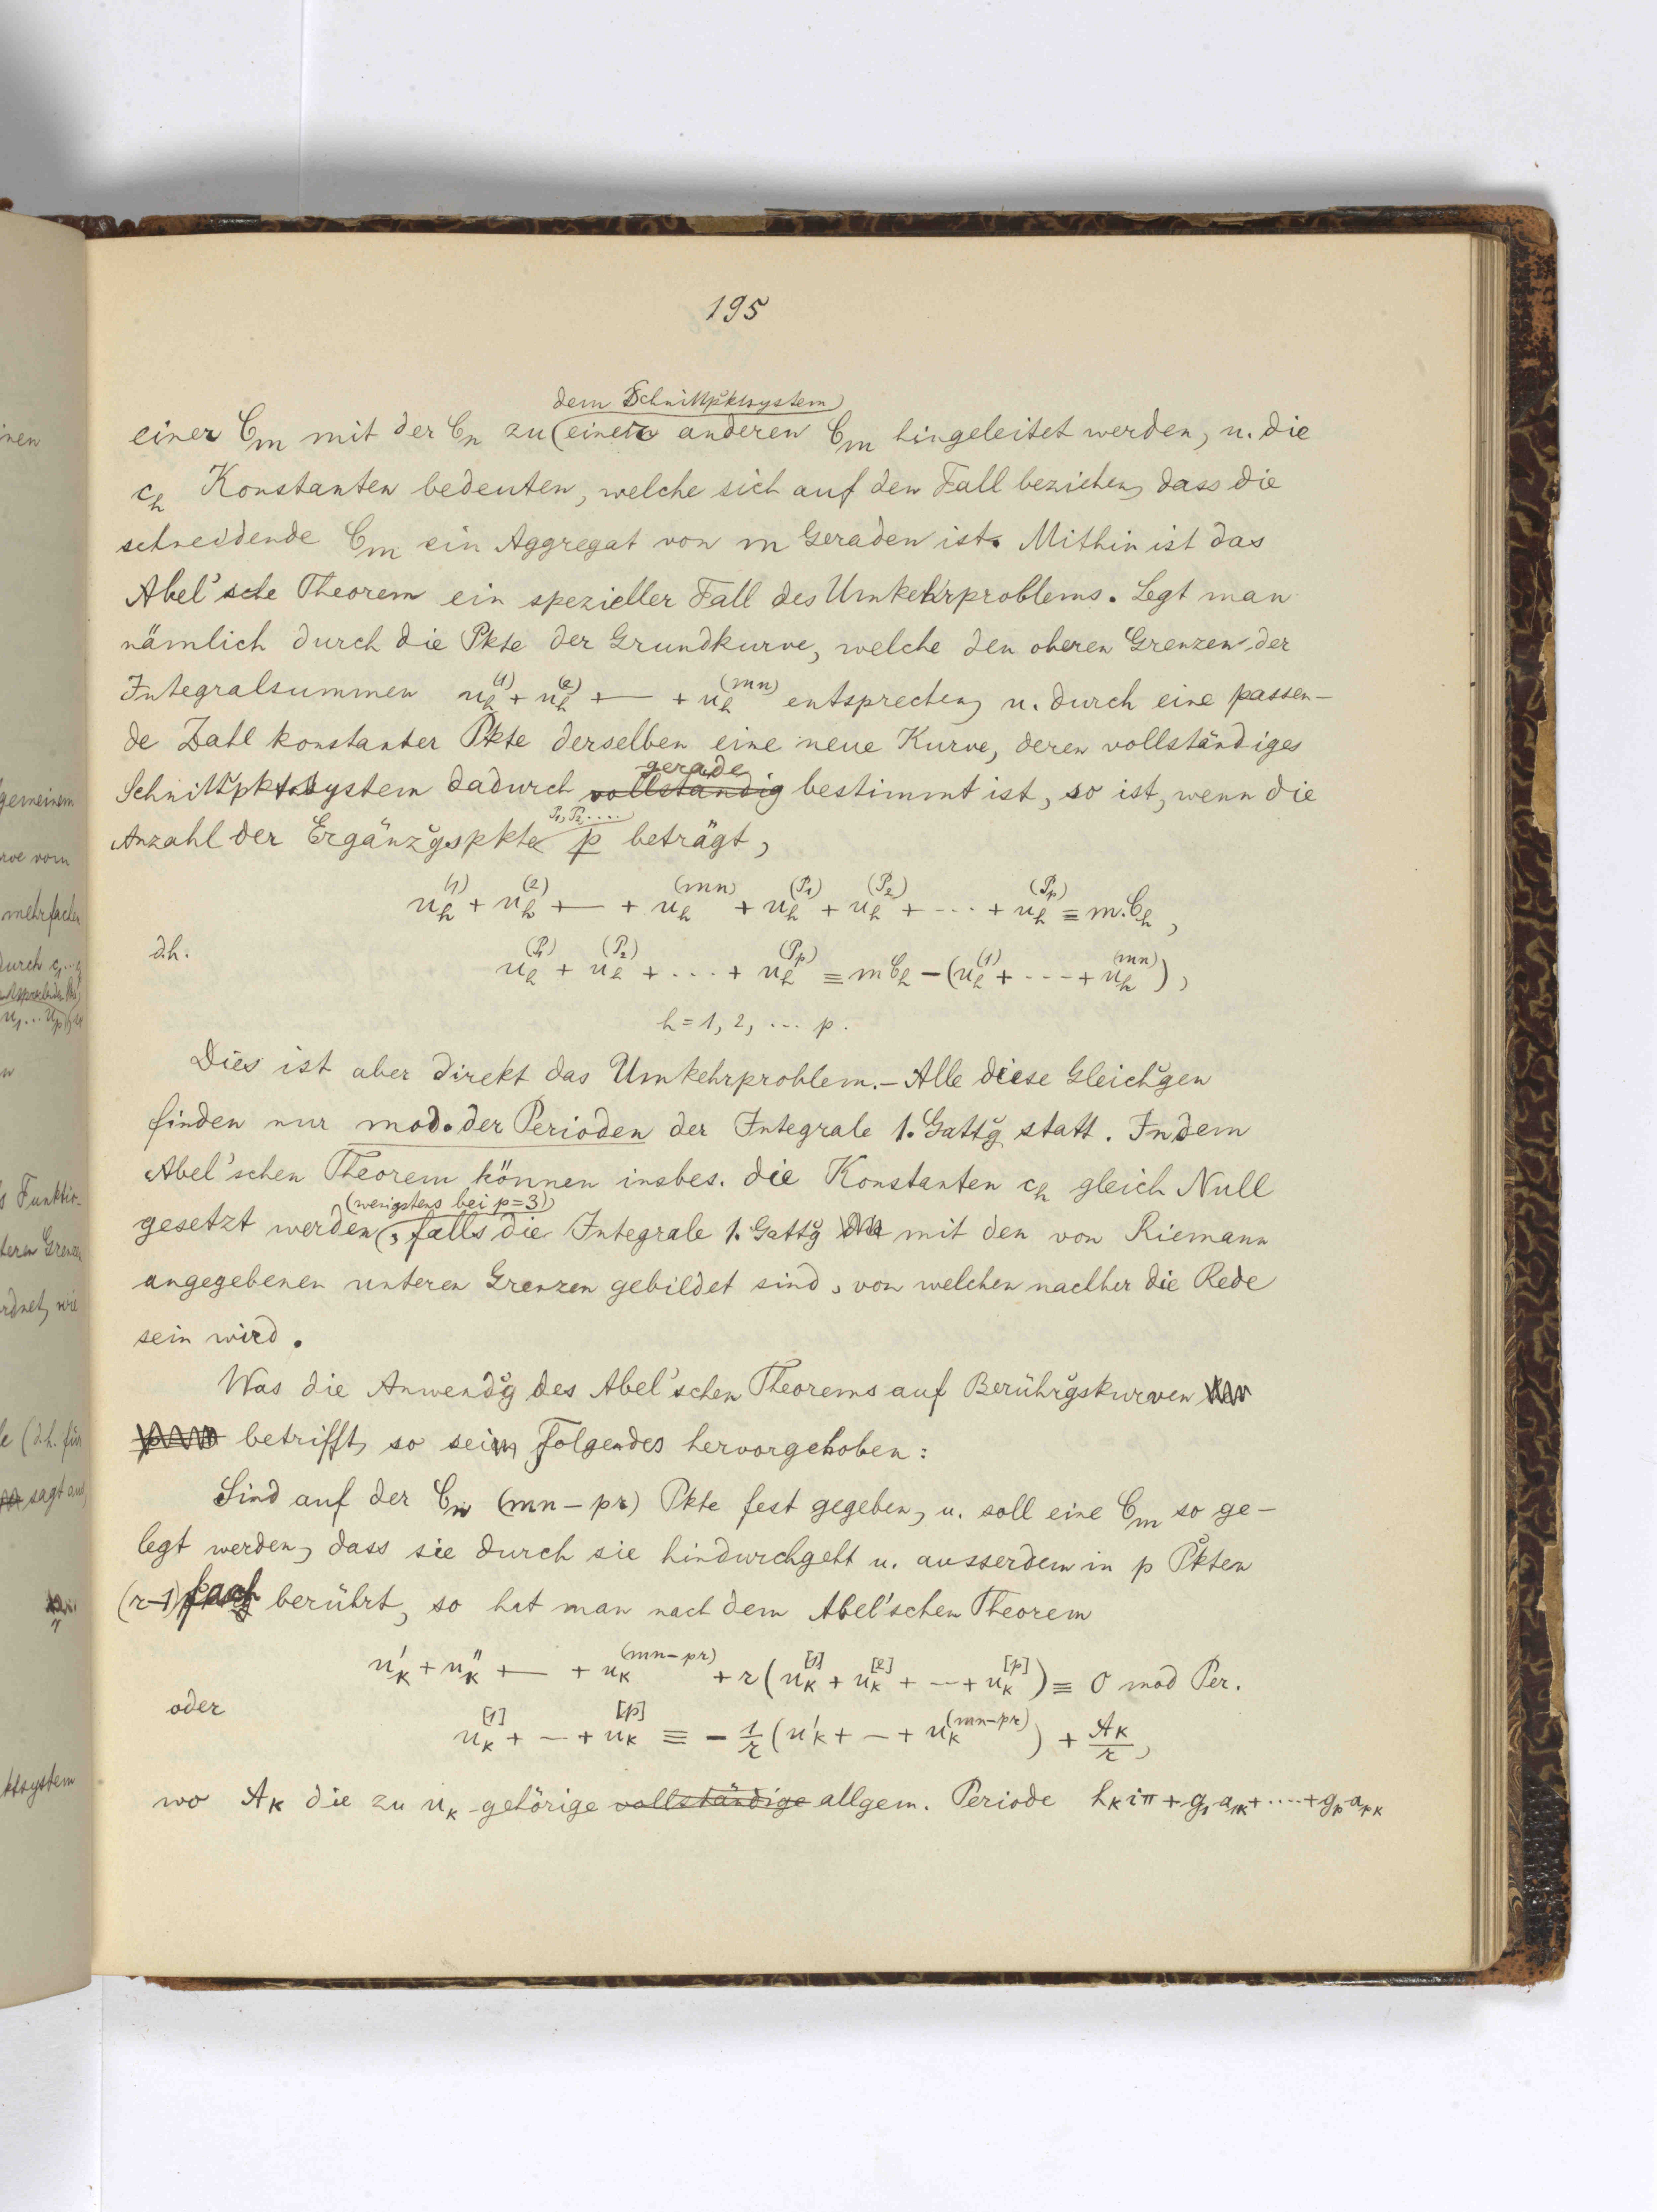 195
dem Schnittpktsystem
einer C_m mit der C_n zu (einer anderen C_m hingeleitet werden, u. die
c_h Konstanten bedeuten, welche sich auf den Fall beziehen, dass die
schneidende C_m ein Aggregat von m Geraden ist. Mithin ist das
Abel'sche Theorem ein spezieller Fall des Umkehrproblems. Legt man
nämlich durch die Pkte der Grundkurve, welche den oberen Grenzen der
Integralsummen u_h^(1) + u_h^(2) + — + u_h^(mn) entsprechen, u. durch eine passen-
de Zahl konstanter Pkte derselben eine neue Kurve, deren vollständiges
gerade
Schnittpktsystem dadurch vollständig bestimmt ist, so ist, wenn die
P_1, P_2, ....
Anzahl der Ergänzŭgspkte p beträgt,
u_h^(1) + u_h^(2) + — + u_h^(mn) + u_h^(P_1) + u_h^(P_2) + ... + u_h^(P_p) ≡ m.C_h,
d.h. u_h^(P_1) + u_h^(P_2) + ... + u_h^(P_p) ≡ m C_h - (u_h^(1) + ... + u_h^(mn)),
h = 1, 2, ... p.
Dies ist aber direkt das Umkehrproblem. - Alle diese Gleichŭgen
finden nur mod. der Perioden der Integrale 1. Gattŭg statt. In dem
Abel'schen Theorem können insbes. die Konstanten c_h gleich Null
(wenigstens bei p=3)
gesetzt werden, falls die Integrale 1. Gattŭg mit den von Riemann
angegebenen unteren Grenzen gebildet sind, von welchen nachher die Rede
sein wird.
Was die Anwendŭg des Abel'schen Theorems auf Berührŭgskurven
betrifft, so sei Folgendes hervorgehoben:
Sind auf der C_n (mn - pr) Pkte fest gegeben, u. soll eine C_m so ge-
legt werden, dass sie durch sie hindurchgeht u. ausserdem in p Pkten
(r-1)fach berührt, so hat man nach dem Abel'schen Theorem
u_k' + u_k'' + — + u_k^(mn-pr) + r(u_k^[1] + u_k^[2] + — + u_k^[p]) ≡ 0 mod Per.
oder
u_k^[1] + — + u_k^[p] ≡ - 1/r (u_k' + — + u_k^(mn-pr)) + A_k/r,
wo A_k die zu u_k gehörige vollständige allgem. Periode h_k iπ + g_1 a_1k + .... + g_p a_pk